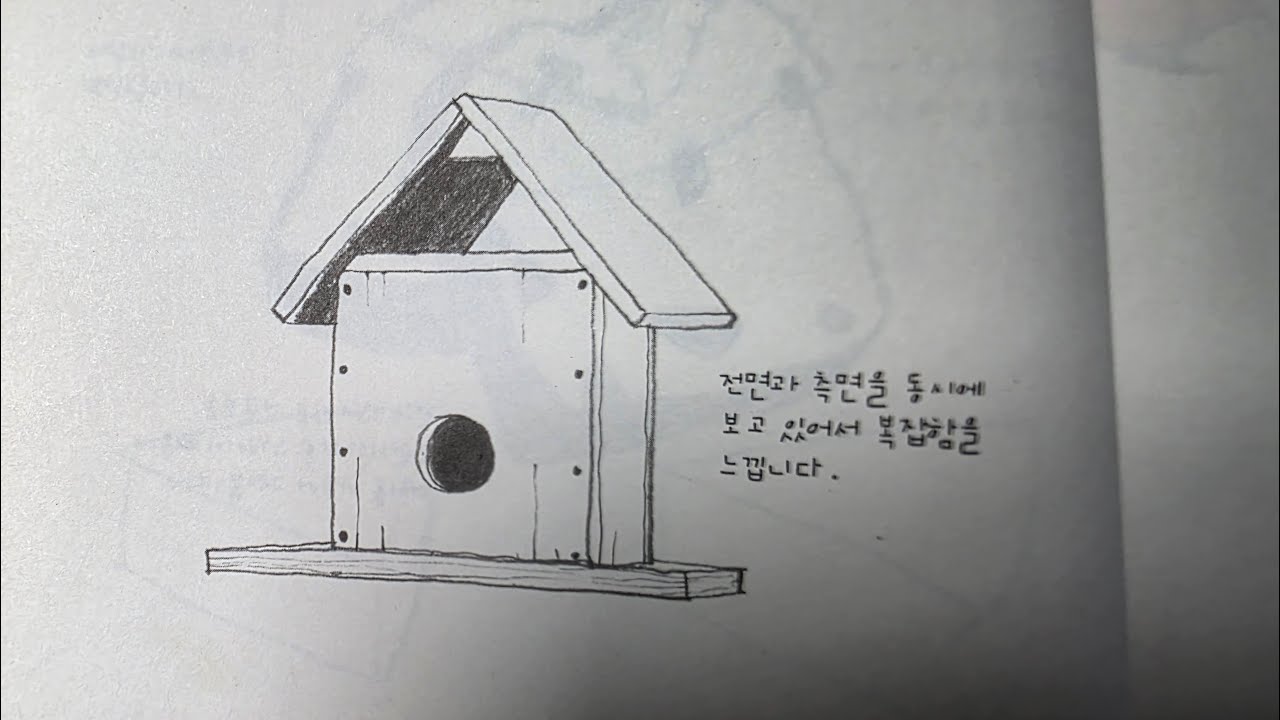 전면과 측면을 동시에
보고 있어서 복잡함을
느낍니다.